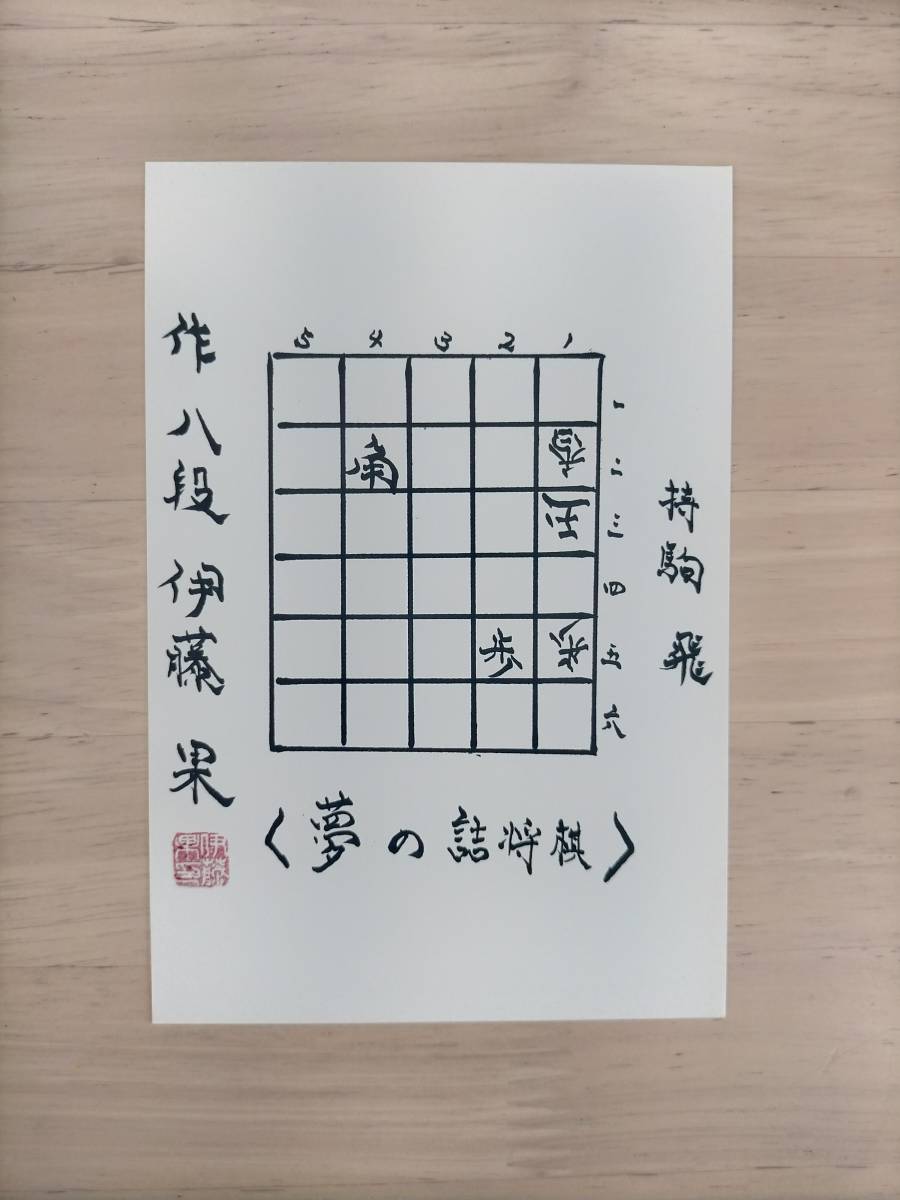 持駒 飛
5 4 3 2 1
一
角 香 二
玉 三
四
歩 歩 五
六
〈夢の詰将棋〉
作 八段 伊藤 果